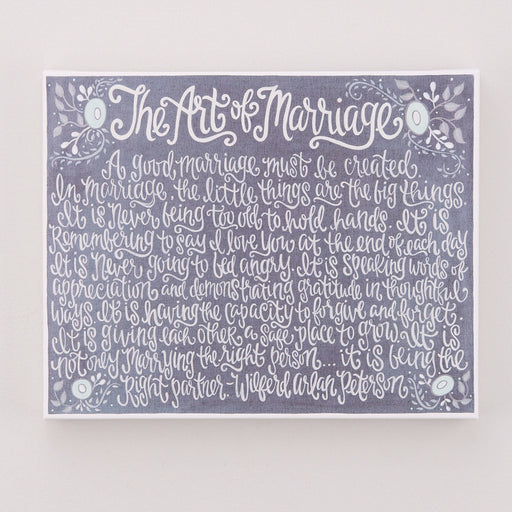 The Art of Marriage
A good marriage must be created.
In Marriage the little things are the big things
It is Never being too old to hold hands. It is
Remembering to say I love you at the end of each day
It is Never going to bed angry. It is speaking words of
appreciation and demonstrating gratitude in thoughtful
ways It is having the capacity to forgive and forget.
It is giving each other a safe place to grow. It is
not only Marrying the right person... it is being the
Right partner - Wilferd Arlan Peterson